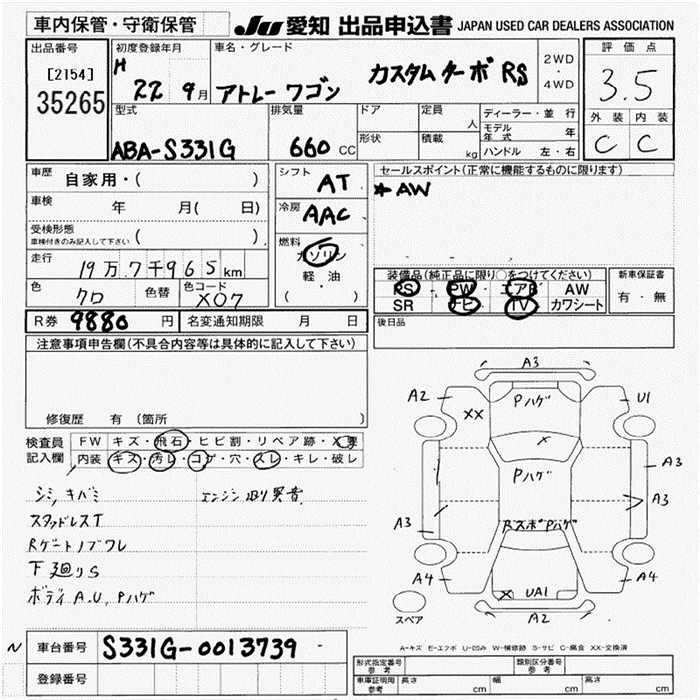 車内保管・守衛保管
JU 愛知 出品申込書 JAPAN USED CAR DEALERS ASSOCIATION
出品番号
[2154]
35265
初度登録年月
H 22 9月
車名・グレード
アトレー ワゴン カスタムターボRS
2WD
・
4WD
評価点
3.5
外装 内装
C C
型式
ABA-S331G
排気量
660 CC
ドア
形状
定員
人
積載
kg
ディーラー・並行
モデル年式 年
ハンドル 左・右
車歴
自家用・( )
車検
年 月( 日)
受検形態
車検付きのみ記入して下さい ( )
走行
19万7千965km
色
クロ
色替
色コード
X07
シフト
AT
冷房
AAC
燃料
ガソリン
軽・油
( )
セールスポイント(正常に機能するものに限ります)
* AW
装備品(純正品に限り○をつけてください)
PS PW エアB AW
SR ナビ TV カワシート
新車保証書
有・無
後日品
R券 9880円
名変通知期限 月 日
注意事項申告欄(不具合内容等は具体的に記入して下さい)
修復歴 有 〔箇所 〕
検査員
記入欄
FW キズ・飛石・ヒビ割・リペア跡・X要
内装 キズ・汚レ・コゲ・穴・スレ・キレ・破レ
シミ,キバミ
エンジン廻り異音
スタッドレスT
Rゲートノブワレ
下廻りS
ボディA.U,Pハゲ
A3
A2
XX
Pハゲ
U1
X
Pハゲ
A3
A3
A3
RスポPハゲ
A4
X
UA1
A4
A2
スペア
A-キズ E-エクボ U-凹み W-補修跡 S-サビ C-腐食 XX-交換済
N
車台番号
S331G-0013739
登録番号
形式指定番号
参考
類別区分番号
参考
車庫証明用
参考
長さ cm
幅 cm
高さ cm